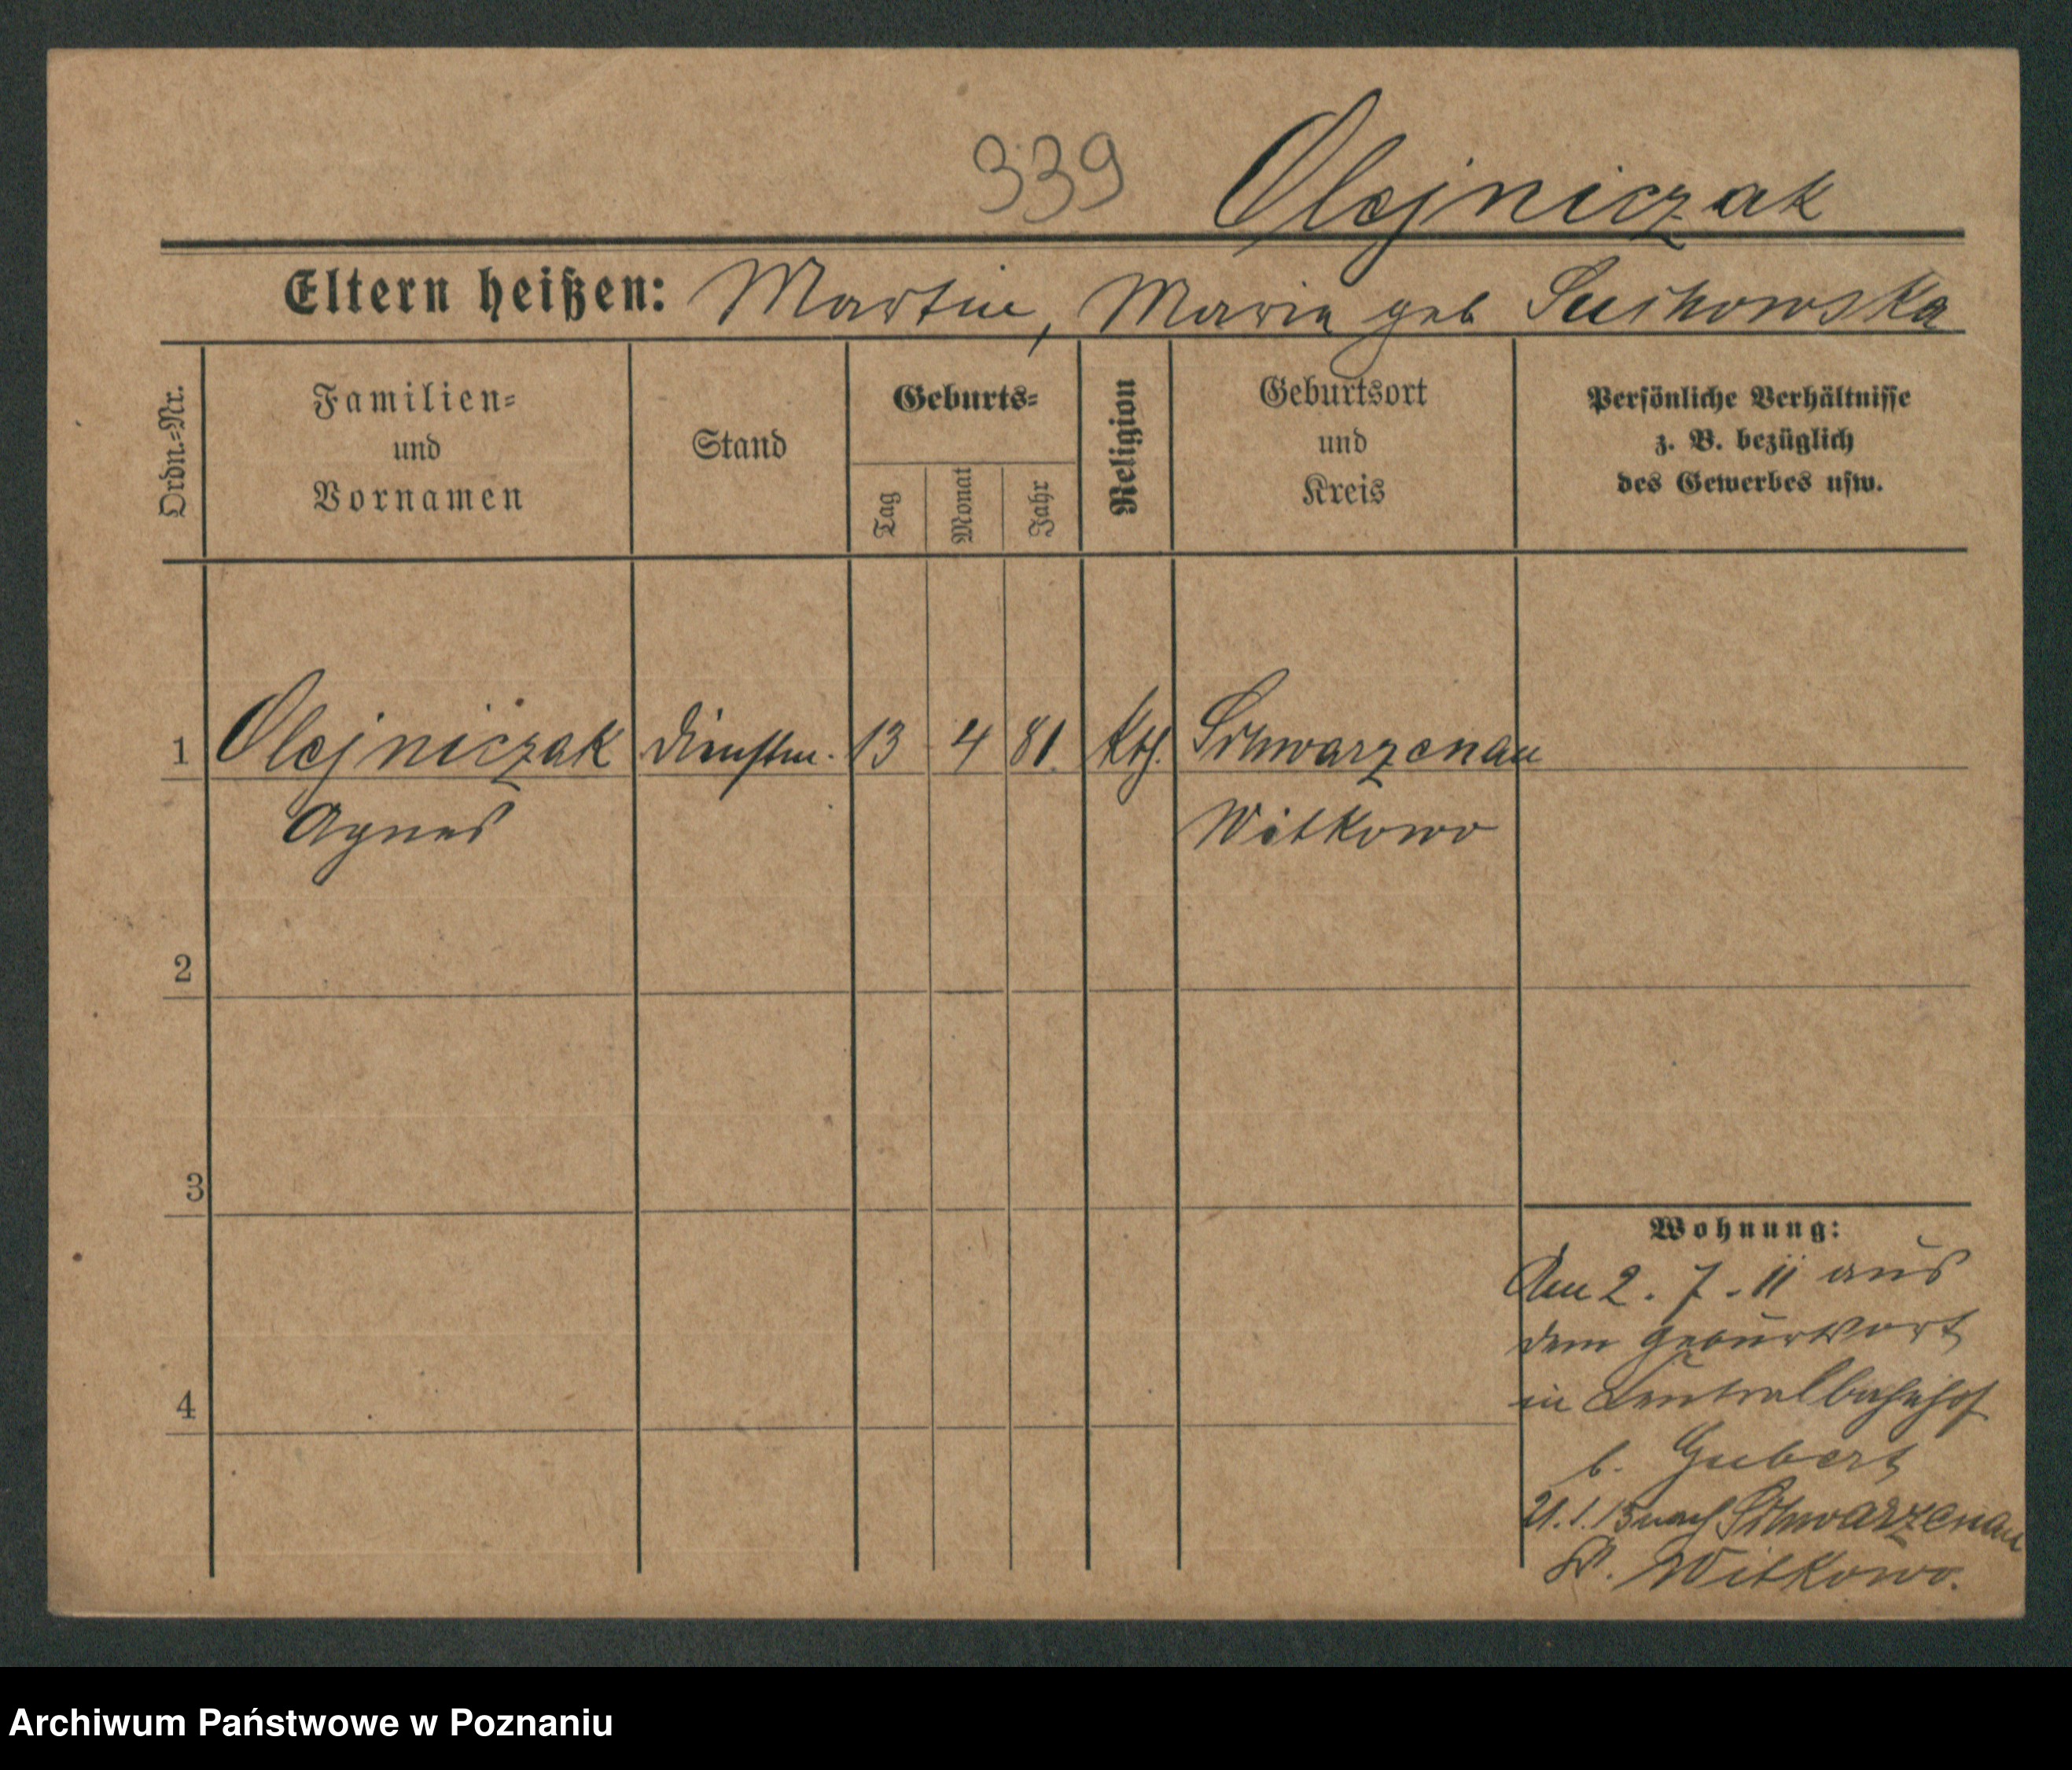 339 Olejniczak
Eltern heißen: Martin, Maria geb Suchowska
Ordn.=Nr.
Familien=
und
Vornamen
Stand
Geburts=
Tag
Monat
Jahr
Religion
Geburtsort
und
Kreis
Persönliche Verhältnisse
z. B. bezüglich
des Gewerbes usw.
1 Olejniczak Dienstm. 13 4 81 kth. Schwarzenau
Agnes Witkowo
2
3
4
Wohnung:
Am 2. 7. 11 aus
dem Geburtsort
in Centralbahnhof
b. Gubert
21.1.15 nach Schwarzenau
Kr. Witkowo.
Archiwum Państwowe w Poznaniu